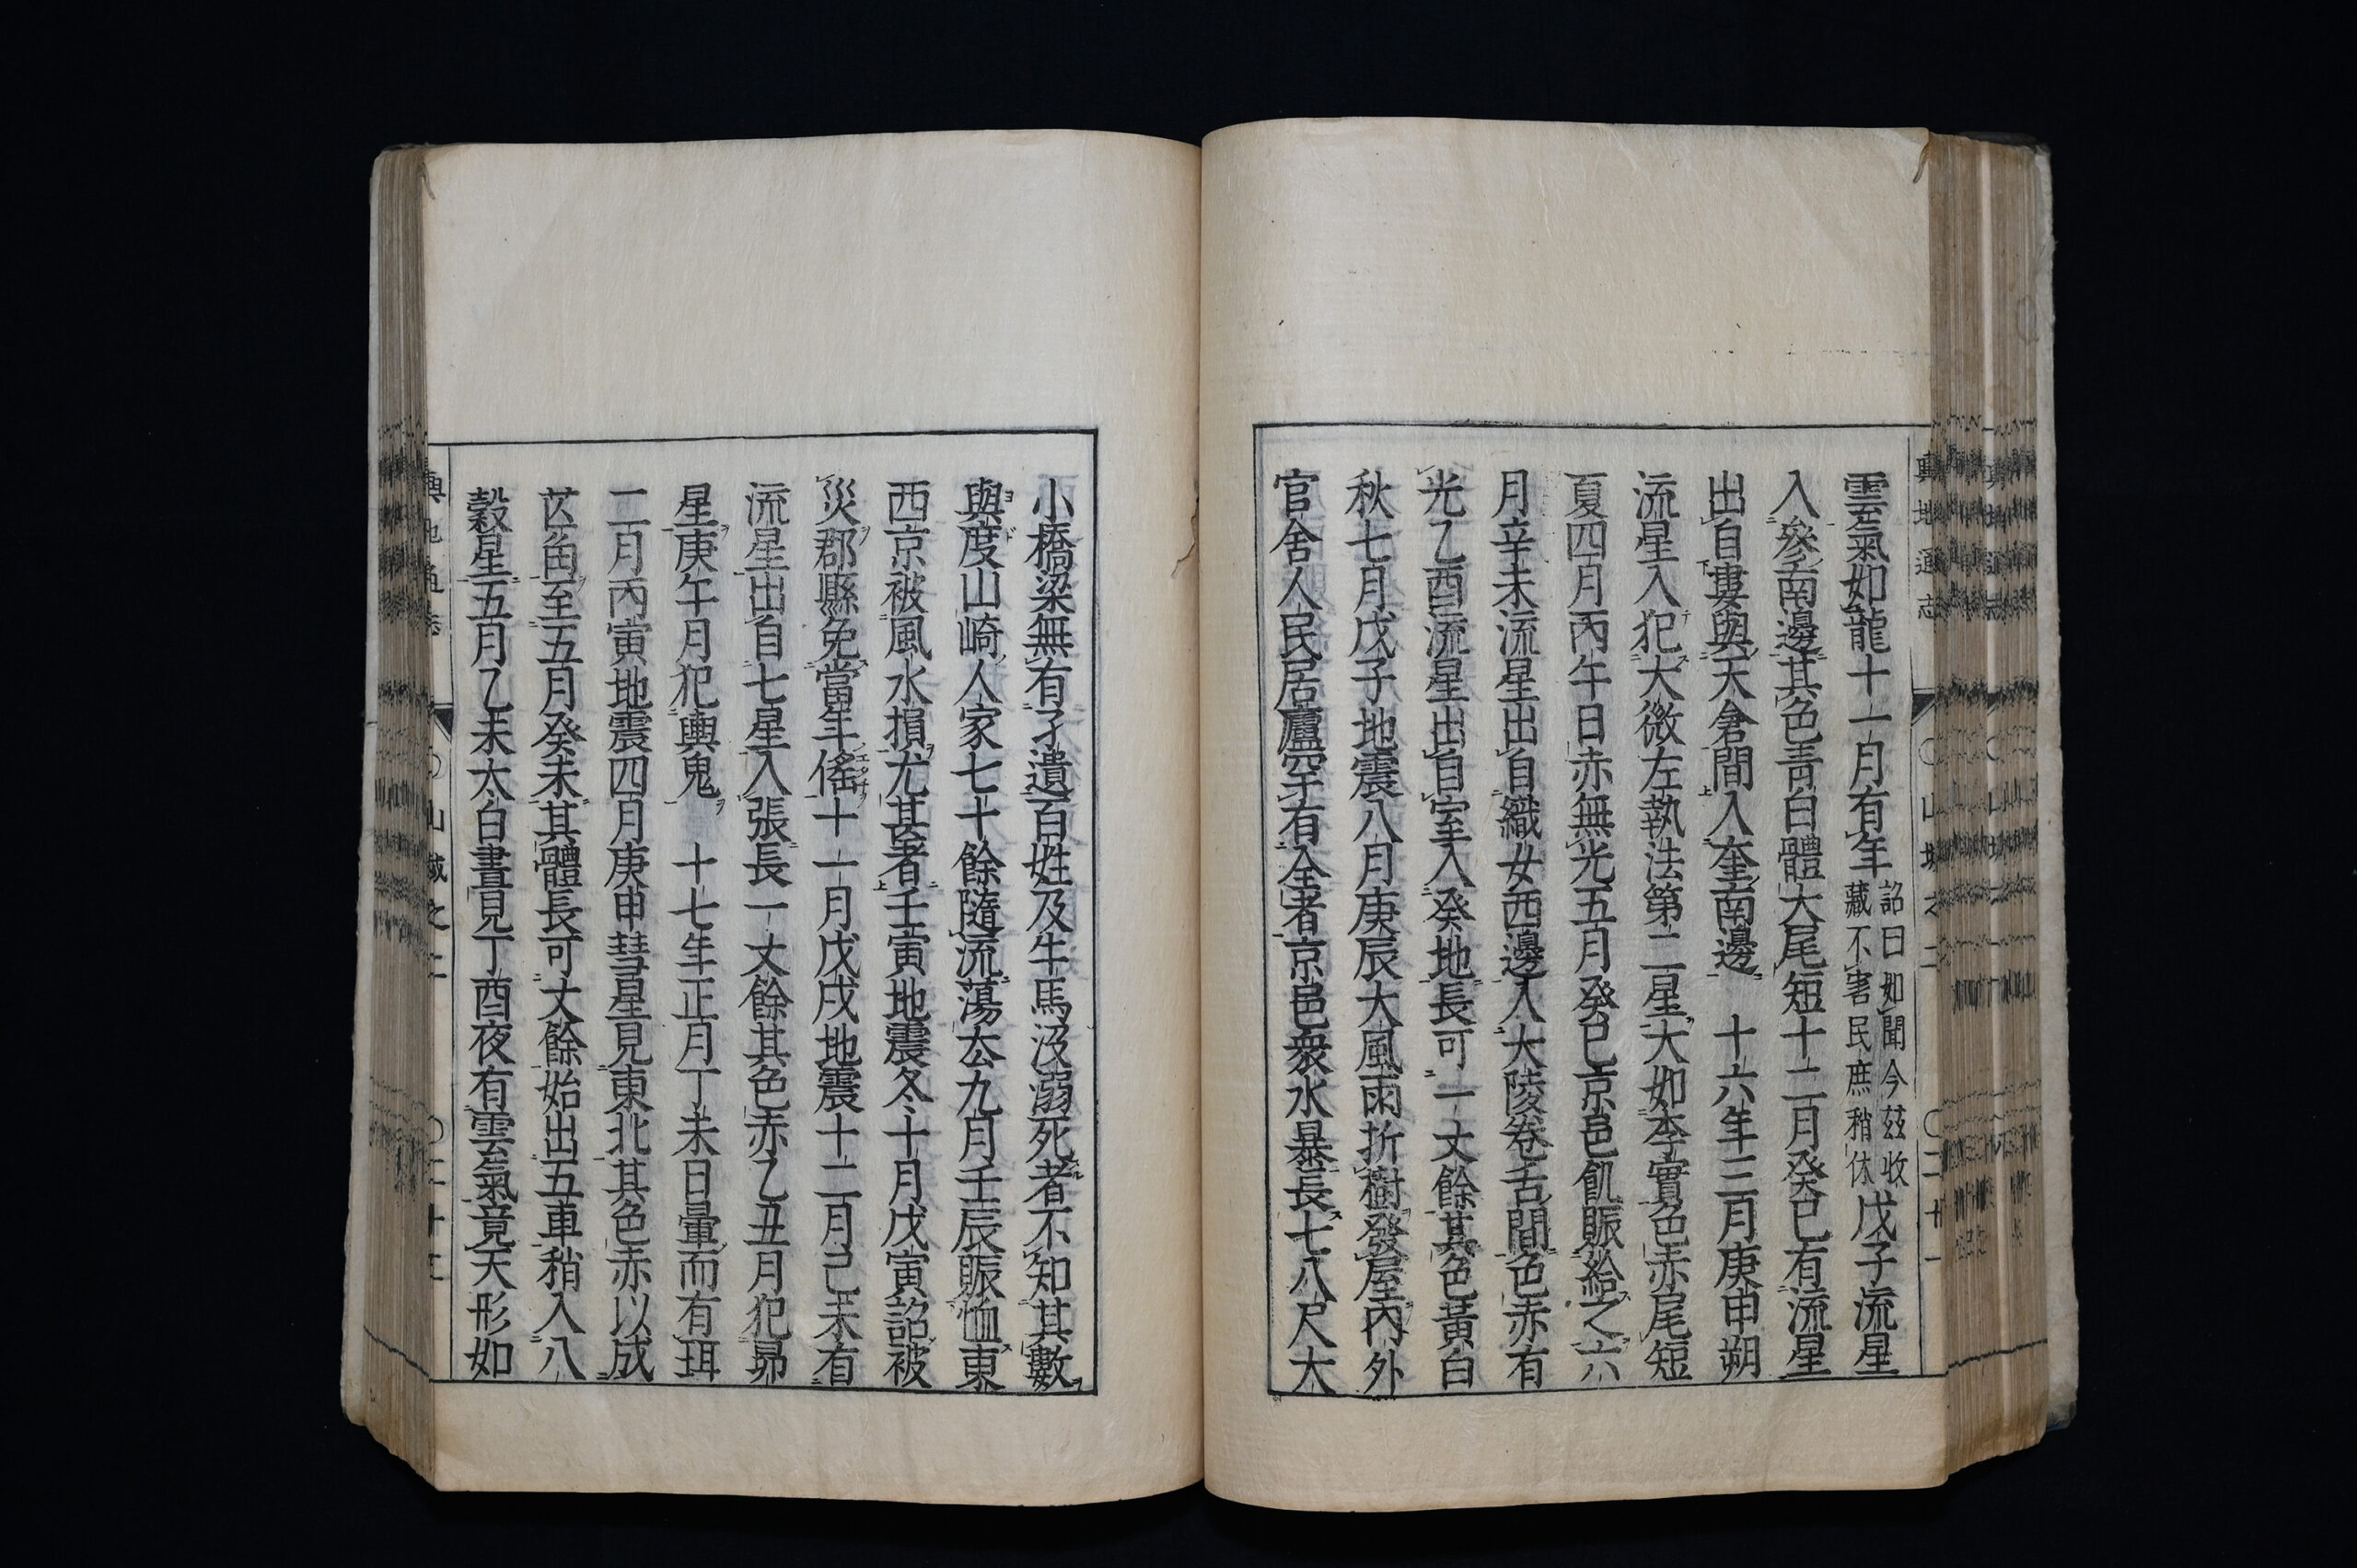 雲氣如龍十一月有年詔曰如聞今茲收藏不害民庶稍休戊子流星
入參南邊其色青白體大尾短十二月癸巳有流星
出自婁與天倉間入奎南邊　十六年三月庚申朔
流星入犯大微左執法第二星大如李實色赤尾短
夏四月丙午日赤無光五月癸巳京邑飢賑給之六
月辛未流星出自織女西邊入大陵卷舌間色赤有
光乙酉流星出自室入癸地長可一丈餘其色黃白
秋七月戊子地震八月庚辰大風雨折樹發屋內外
官舍人民居廬罕有全者京邑衆水暴長七八尺大
小橋梁無有孑遺百姓及牛馬沒溺死者不知其數
與度山崎人家七十餘隨流蕩去九月壬辰賑恤東
西京被風水損尤甚者壬寅地震冬十月戊寅詔被
災郡縣免當年徭十一月戊戌地震十二月己未有
流星出自七星入張長一丈餘其色赤乙丑月犯昴
星庚午月犯輿鬼　十七年正月丁未日暈而有珥
二月丙寅地震四月庚申彗星見東北其色赤以成
芒角至五月癸未其體長可丈餘始出五車稍入八
穀星五月乙未太白晝見丁酉夜有雲氣竟天形如
輿地通志
〇山城之二
〇二十一